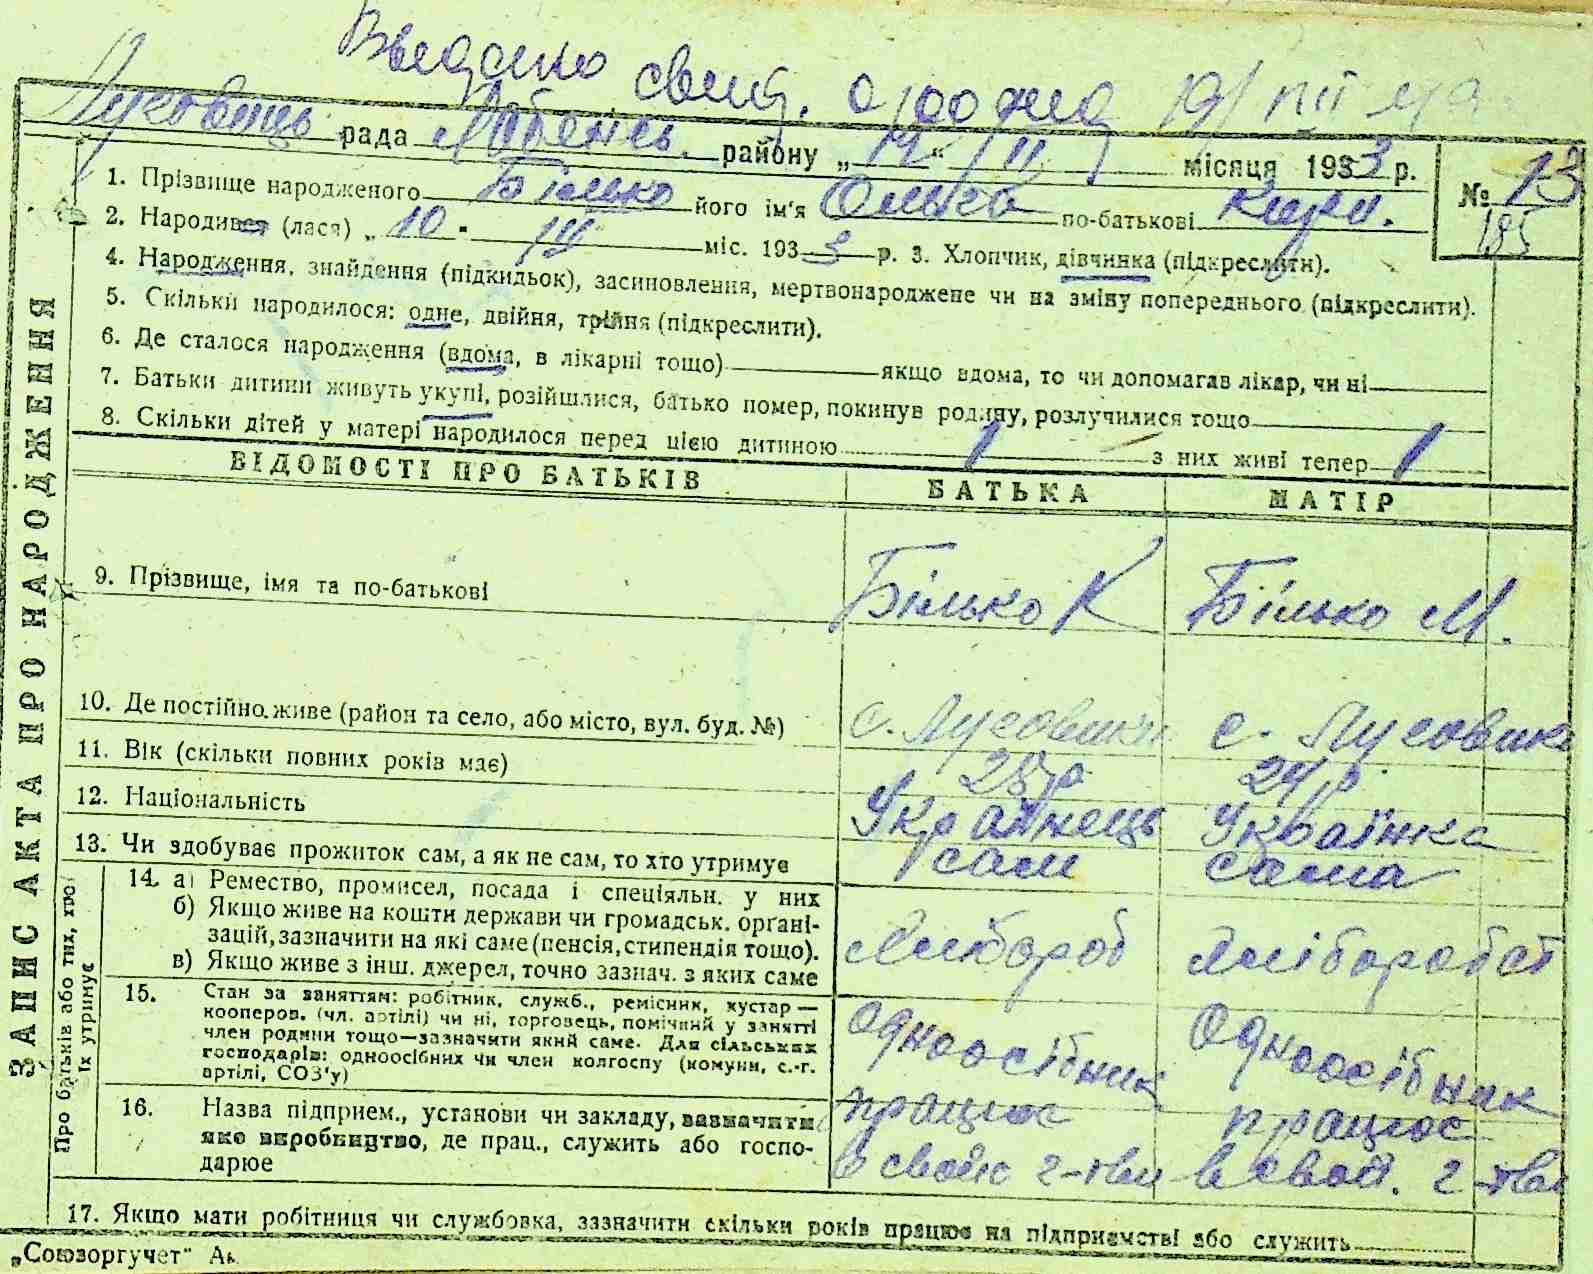 свид. о рожд
рада района „ 14 “ II місяця 1933 р.
№ 13
185
1. Прізвище народженого Білько його ім'я Ольга по-батькові Кири.
2. Народився (лася) „ 10 " III міс. 1933 р. 3. Хлопчик, дівчинка (підкреслити).
4. Народження, знайдення (підкидьок), засиновлення, мертвонароджене чи на зміну попереднього (підкреслити).
5. Скільки народилося: одне, двійня, трійня (підкреслити).
6. Де сталося народження (вдома, в лікарні тощо) якщо вдома, то чи допомагав лікар, чи ні
7. Батьки дитини живуть укупі, розійшлися, батько помер, покинув родину, розлучилися тощо
8. Скільки дітей у матері народилося перед цією дитиною 1 з них живі тепер 1
ЗАПИС АКТА ПРО НАРОДЖЕННЯ
ВІДОМОСТІ ПРО БАТЬКІВ БАТЬКА МАТІР
9. Прізвище, імя та по-батькові Білько К Білько М.
10. Де постійно живе (район та село, або місто, вул. буд. №) с. с.
11. Вік (скільки повних років має) 24 р
12. Національність Українець Українка
13. Чи здобуває прожиток сам, а як не сам, то хто утримує сам сама
Про батьків або тих, хто їх утримує
14. а) Ремество, промисел, посада і спеціяльн. у них
б) Якщо живе на кошти держави чи громадськ. орґані-
зацій, зазначити на які саме (пенсія, стипендія тощо).
в) Якщо живе з інш. джерел, точно зазнач. з яких саме
15. Стан за заняттям: робітник, служб., ремісник, кустар —
кооперов. (чл. артілі) чи ні, торговець, помічний у занятті
член родини тощо—зазначити який саме. Для сільських
господарів: одноосібних чи член колгоспу (комуни, с.-г.
артілі, СОЗ'у)
Одноосібник Одноосібник
16. Назва підприєм., установи чи закладу, зазначити
яке виробництво, де прац., служить або госпо-
дарює
працює працює
в своїо г-тви в свой. г-тві
17. Якщо мати робітниця чи службовка, зазначити скільки років працює на підприємстві або служить
„Союзоргучет“